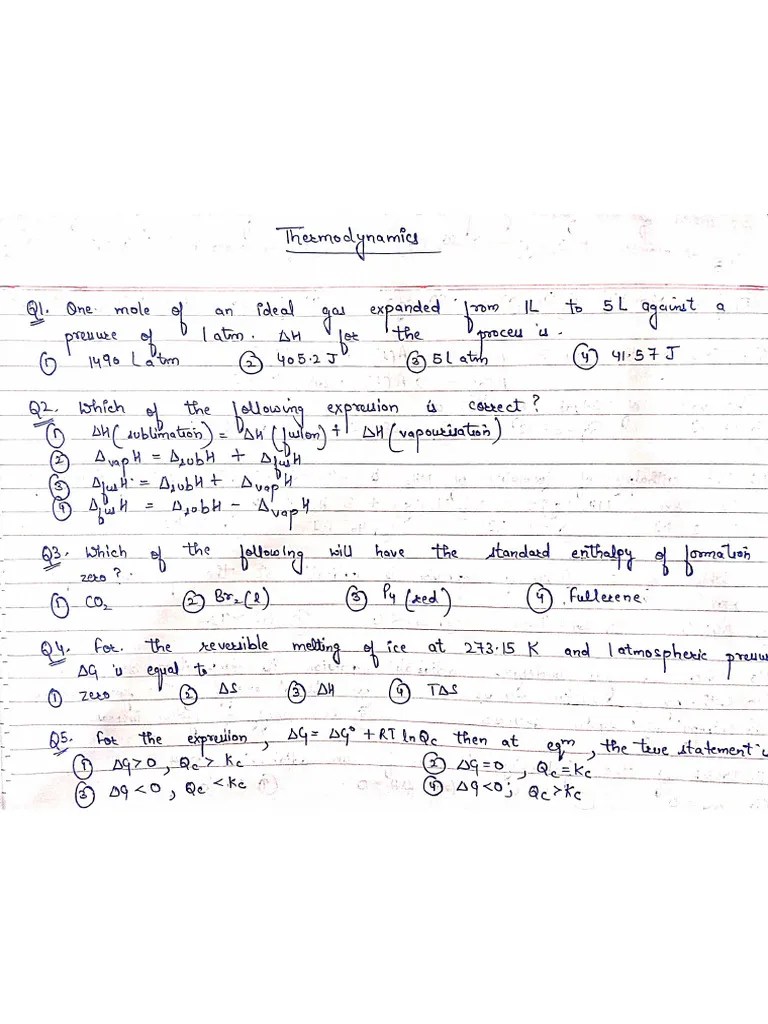 Thermodynamics
Q1. One mole of an ideal gas expanded from 1L to 5L against a
pressure of 1 atm. ΔH for the process is.
① 1490 L atm ② 405.2 J ③ 5 L atm ④ 41.57 J
Q2. Which of the following expression is correct?
① ΔH(sublimation) = ΔH(fusion) + ΔH(vapourisation)
② ΔvapH = ΔsubH + ΔfusH
③ ΔfusH = ΔsubH + ΔvapH
④ ΔfusH = ΔsubH - ΔvapH
Q3. Which of the following will have the standard enthalpy of formation
zero?
① CO₂ ② Br₂(l) ③ P₄(red) ④ Fullerene
Q4. For the reversible melting of ice at 273.15 K and 1 atmospheric pressure
ΔG is equal to
① zero ② ΔS ③ ΔH ④ TΔS
Q5. For the expression, ΔG = ΔG° + RT lnQc then at eqm, the true statement
① ΔG>0, Qc > Kc ② ΔG=0, Qc=Kc
③ ΔG<0, Qc <Kc ④ ΔG<0; Qc>Kc